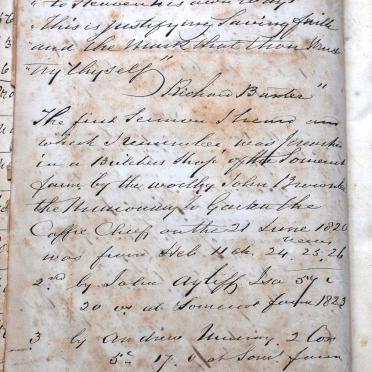 "to Heaven his own way
"This is justifying saving faith
and the
Try Thyself"
"Richard Baxter"
The first Sermon I heard and
which I remember was preached
in a Butchers Shop of the Somerset
farm, by the worthy John Brownlee
the Missionary to Gaika the
Caffre Chief on the 21 June 1820
was from Heb 11 ch. 24, 25, 26
verses
2nd by John Ayliff Isa 5
20 vs at Somerset farm 1823
3 by Andrew Murray. 2 Cor
5th 17. v at Som. farm